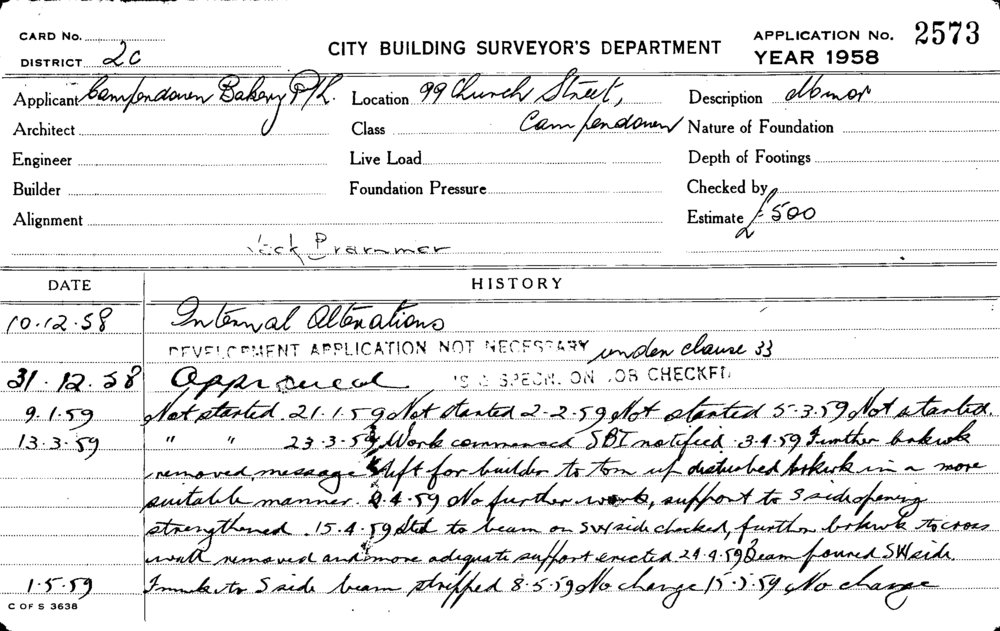 CARD No.
DISTRICT 2C
CITY BUILDING SURVEYOR'S DEPARTMENT
APPLICATION No. 2573
YEAR 1958
Applicant Camperdown Bakery P/L. Location 99 Church Street, Description Minor
Architect Class Camperdown Nature of Foundation
Engineer Live Load Depth of Footings
Builder Foundation Pressure Checked by
Alignment Estimate £500
DATE HISTORY
10.12.58 Internal Alterations
DEVELOPMENT APPLICATION NOT NECESSARY under clause 33
31.12.58 Approved SPECN. ON JOB CHECKED
9.1.59 Not started 21.1.59 Not started 2-2-59 Not started 5-3.59 Not started.
13.3.59 " " 23-3-59 Work commenced SBI notified 3.4.59 Further bokwk
removed message left for builder to up disturbed bokwk in a more
suitable manner. 9.4.59 No further work, support to S side opening
strengthened. 15.4.59 Steel to beam on SW side checked, further bokwk to cross
wall removed and more adequate support erected 24.4.59 Beam poured SW side.
1.5.59 to S side beam stripped 8-5-59 No change 15.5.59 No change
C OF S 3638